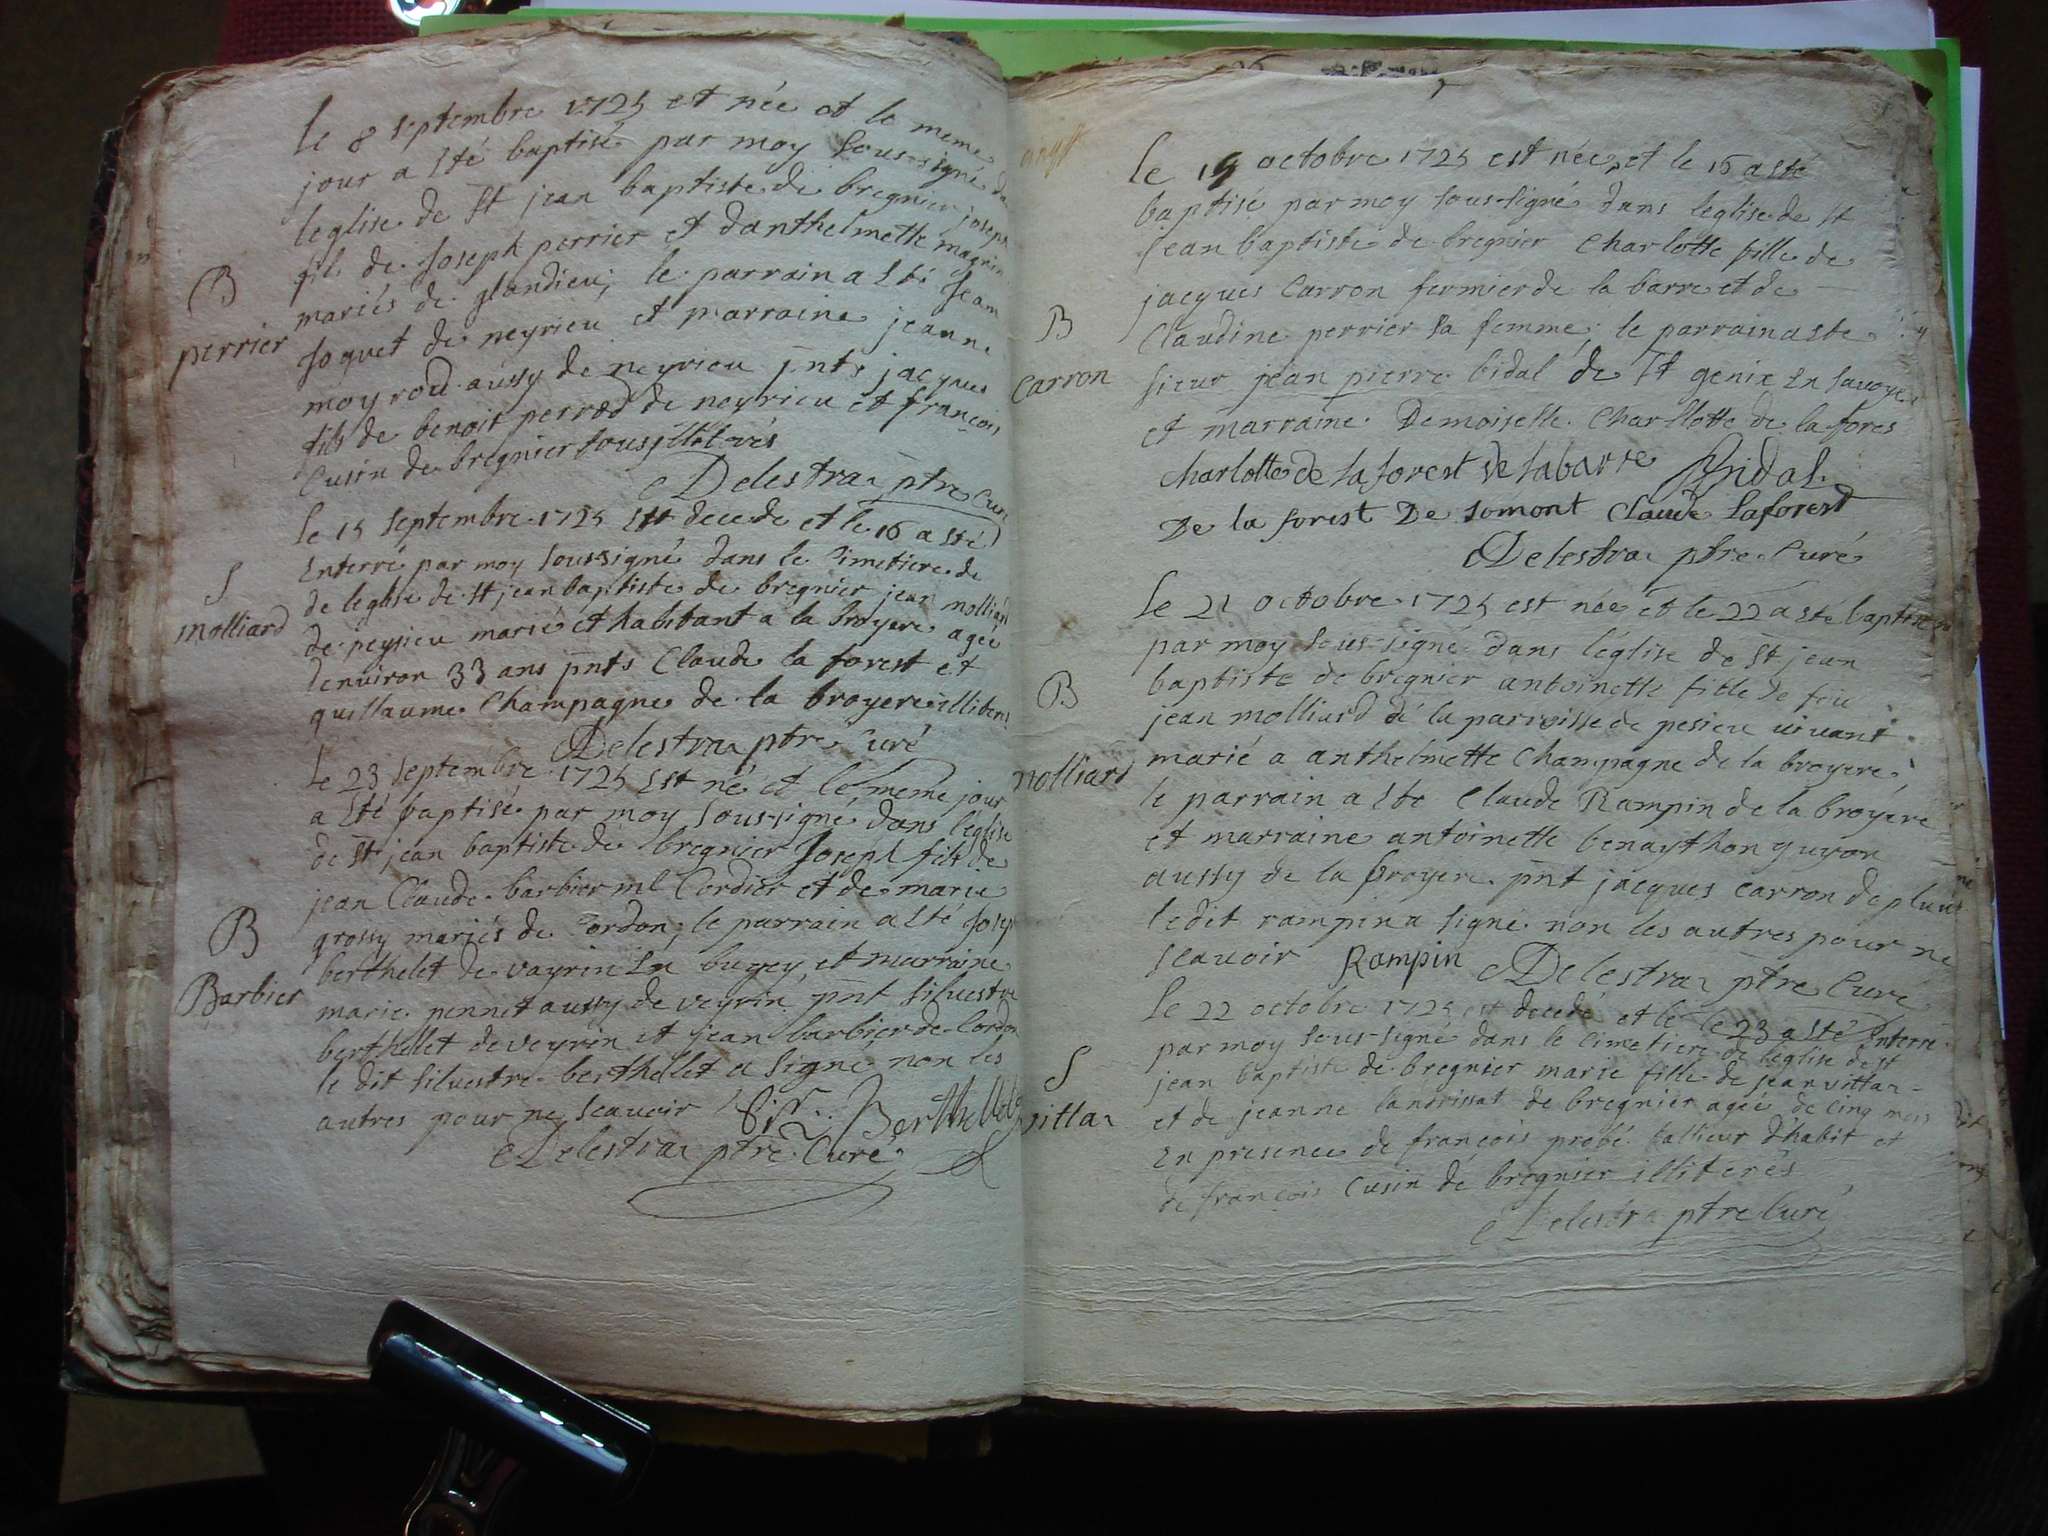 le 8 septembre 1725 et née et le meme
jour a sté baptisé par moy sous-signé da
leglise de st jean baptiste de bregnier joseph
fils de Joseph perrier et danthelmette magnin
mariés de glandieu, le parrain a sté Jean
Joguet de neyrieu et marraine jeanne
moyrod aussy de neyrieu pnts jacques
fils de benoit perrod de neyrieu et françois
Cusin de bregnier sous illétrés
Delestra ptre Curé
B
perrier
le 15 septembre 1725 est decede et le 16 a sté
Enterré par moy soussigné dans le Cimetiere de
de leglise de st jean baptiste de bregnier jean molliard
de peysieu marié et habitant a la broyere agée
denviron 33 ans pnts Claude la forest et
guillaume Champagne de la broyere illiterés
Delestra ptre Curé
S
molliard
le 23 septembre 1725 est né et le meme jour
a sté baptisé par moy sous-signé dans leglise
de st jean baptiste de bregnier Joseph fils de
jean Claude barbier ml Cordier et de marie
grossy mariés de Cordon, le parrain a sté Josep
berthelet de vayrin En bugey et marraine
marie pennet aussy de veyrin pnt silvestre
berthellet de veyrin et jean barbier de Cordon
le dit silvestre berthellet a signé non les
autres pour ne scavoir Sil. Berthellet
Delestra ptre Curé
B
Barbier
le 15 octobre 1725 est née et le 16 a sté
baptisé par moy sous-signé dans leglise de st
jean baptiste de bregnier Charlotte fille de
jacques Carron fermier de la barre et de
Claudine perrier sa femme, le parrain a ste
sieur jean pierre bidal de st genix En savoye
et marraine Demoiselle Charllotte de la fores
charlotte de la forest de labarre Bidal
De la forest De somont Claude laforest
Delestra ptre Curé
B
Carron
le 21 octobre 1725 est née et le 22 a sté baptisé
par moy sous-signé dans l'église de st jean
baptiste de bregnier antoinette fille de feu
jean molliard de la parroisse de pesieu vivant
marié a anthelmette Champagne de la broyere,
le parrain a ste Claude Rampin de la broyere
et marraine antoinette guyon
aussy de la broyere pnt jacques carron de
le dit rampin a signé non les autres pour ne
scavoir Rampin Delestra ptre Curé
B
molliard
le 22 octobre 1725 est decedé et le le 23 a sté Enterré
par moy sous-signé dans le cimetiere de leglise de st
jean baptiste de bregnier marie fille de jean vittaz
et de jeanne landrissat de bregnier agée de cinq mois
En presence de françois probé tallieur d'habit et
de françois Cusin de bregnier illiterés
Delestra ptre Curé
S
vittaz